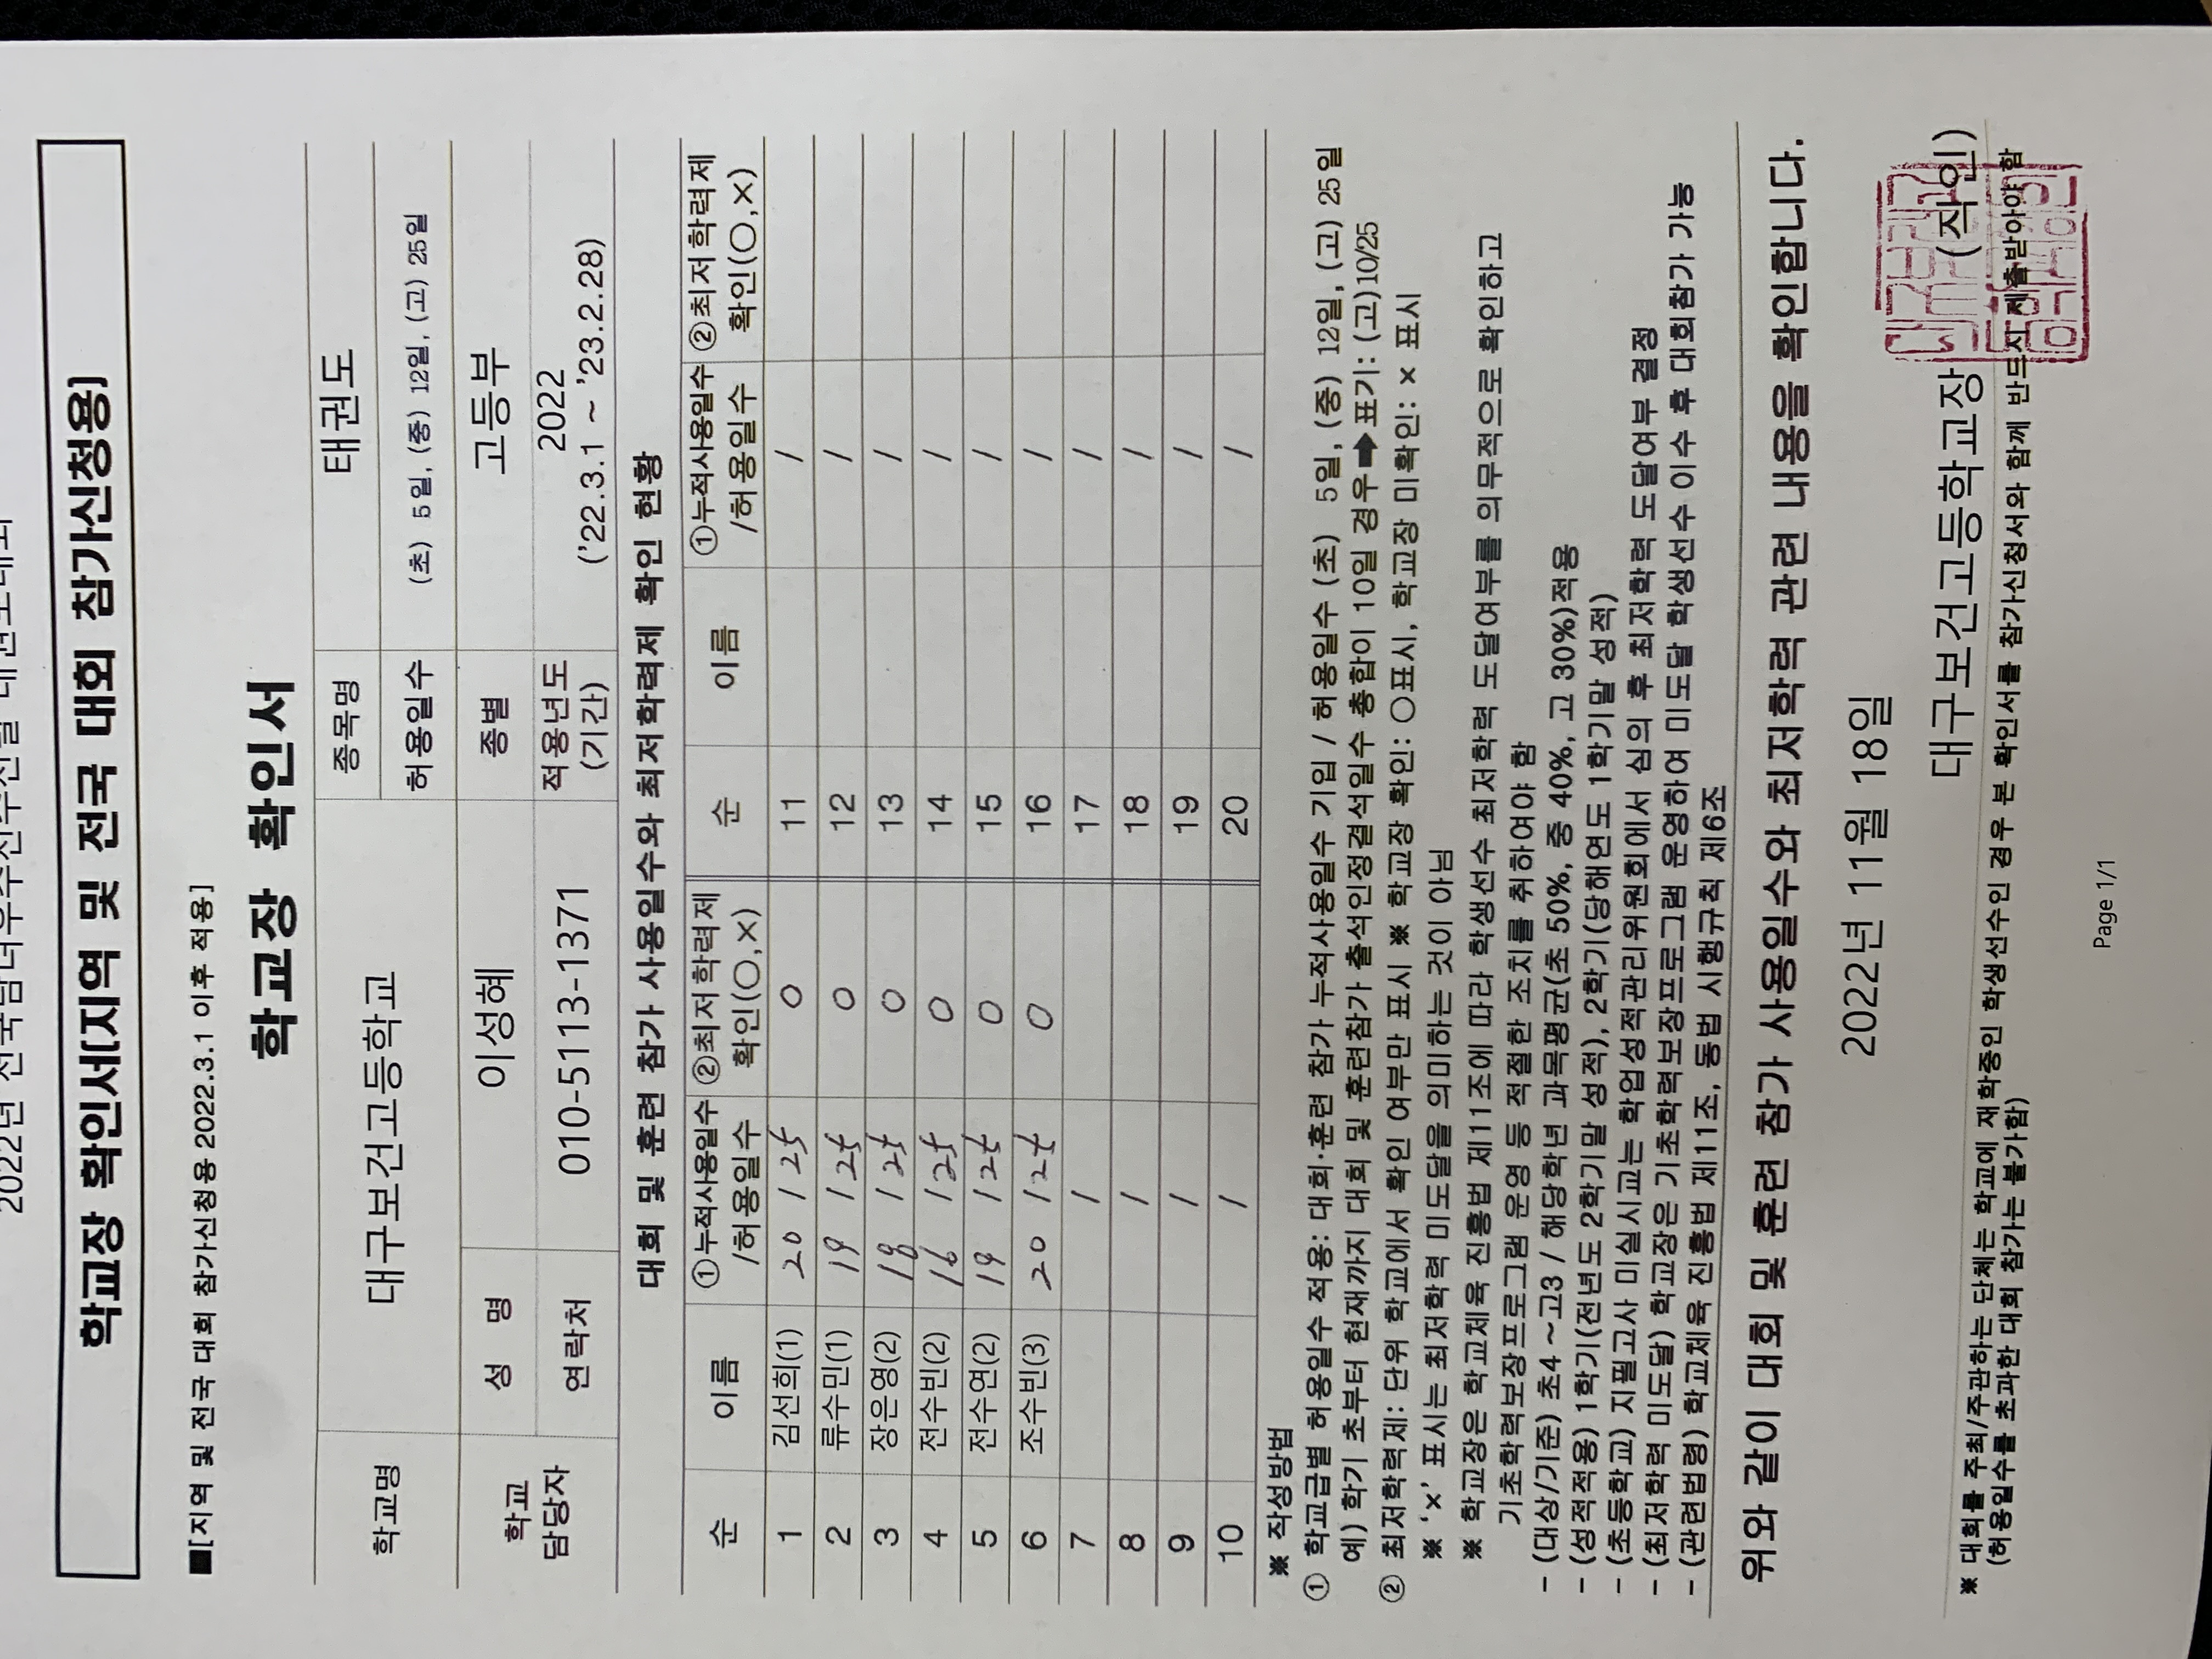 2022년 전국남녀우수선수선발 태권도대회
학교장 확인서(지역 및 전국 대회 참가신청용)
■[지역 및 전국 대회 참가신청용 2022.3.1 이후 적용]
학교장 확인서
학교명 대구보건고등학교 종목명 태권도
허용일수 (초) 5일, (중) 12일, (고) 25일
학교 담당자 성 명 이성혜 종별 고등부
연락처 010-5113-1371 적용년도 (기간) 2022 ('22.3.1 ~ '23.2.28)
대회 및 훈련 참가 사용일수와 최저학력제 확인 현황
순 이름 ①누적사용일수 /허용일수 ②최저학력제 확인(○,×) 순 이름 ①누적사용일수 /허용일수 ②최저학력제 확인(○,×)
1 김선희(1) 20 / 25 ○ 11 /
2 류수민(1) 19 / 25 ○ 12 /
3 장은영(2) 18 / 25 ○ 13 /
4 전수빈(2) 16 / 25 ○ 14 /
5 전수연(2) 19 / 25 ○ 15 /
6 조수빈(3) 20 / 25 ○ 16 /
7 / 17 /
8 / 18 /
9 / 19 /
10 / 20 /
※ 작성방법
① 학교급별 허용일수 적용: 대회·훈련 참가 누적사용일수 기입 / 허용일수 (초) 5일, (중) 12일, (고) 25일
예) 학기 초부터 현재까지 대회 및 훈련참가 출석인정결석일수 총합이 10일 경우➡표기: (고)10/25
② 최저학력제: 단위 학교에서 확인 여부만 표시 ※ 학교장 확인: ○표시, 학교장 미확인: × 표시
※ '×' 표시는 최저학력 미도달을 의미하는 것이 아님
※ 학교장은 학교체육 진흥법 제11조에 따라 학생선수 최저학력 도달여부를 의무적으로 확인하고
기초학력보장프로그램 운영 등 적절한 조치를 취하여야 함
- (대상/기준) 초4 ~고3 / 해당학년 과목평균(초 50%, 중 40%, 고 30%)적용
- (성적적용) 1학기(전년도 2학기말 성적), 2학기(당해연도 1학기말 성적)
- (초등학교) 지필고사 미실시교는 학업성적관리위원회에서 심의 후 최저학력 도달여부 결정
- (최저학력 미도달) 학교장은 기초학력보장프로그램 운영하여 미도달 학생선수 이수 후 대회참가 가능
- (관련법령) 학교체육 진흥법 제11조, 동법 시행규칙 제6조
위와 같이 대회 및 훈련 참가 사용일수와 최저학력 관련 내용을 확인합니다.
2022년 11월 18일
대구보건고등학교장 (직인)
※ 대회를 주최/주관하는 단체는 학교에 재학중인 학생선수인 경우 본 확인서를 참가신청서와 함께 반드시 제출받아야 함
(허용일수를 초과한 대회 참가는 불가함)
Page 1/1